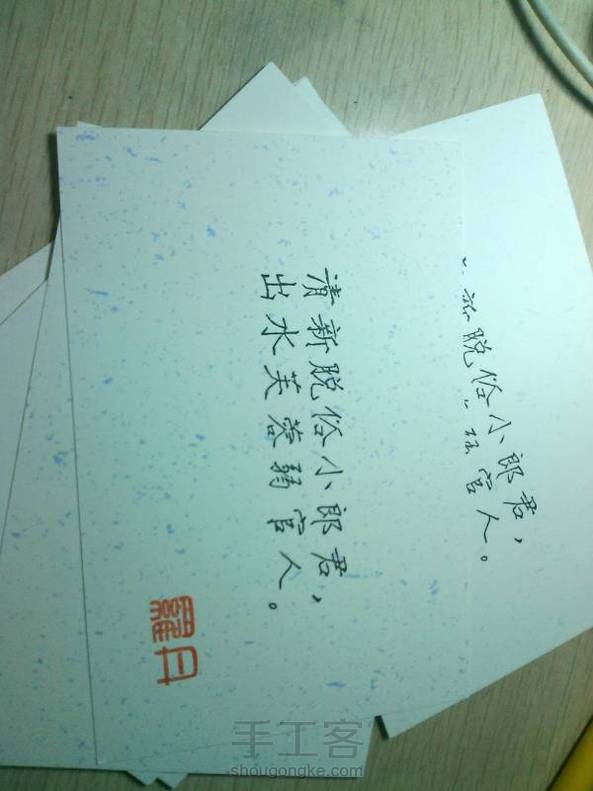 清新脱俗小郎君，
出水芙蓉弱官人。
脱俗小郎君，
官人。
月
手工客
shougongke.com